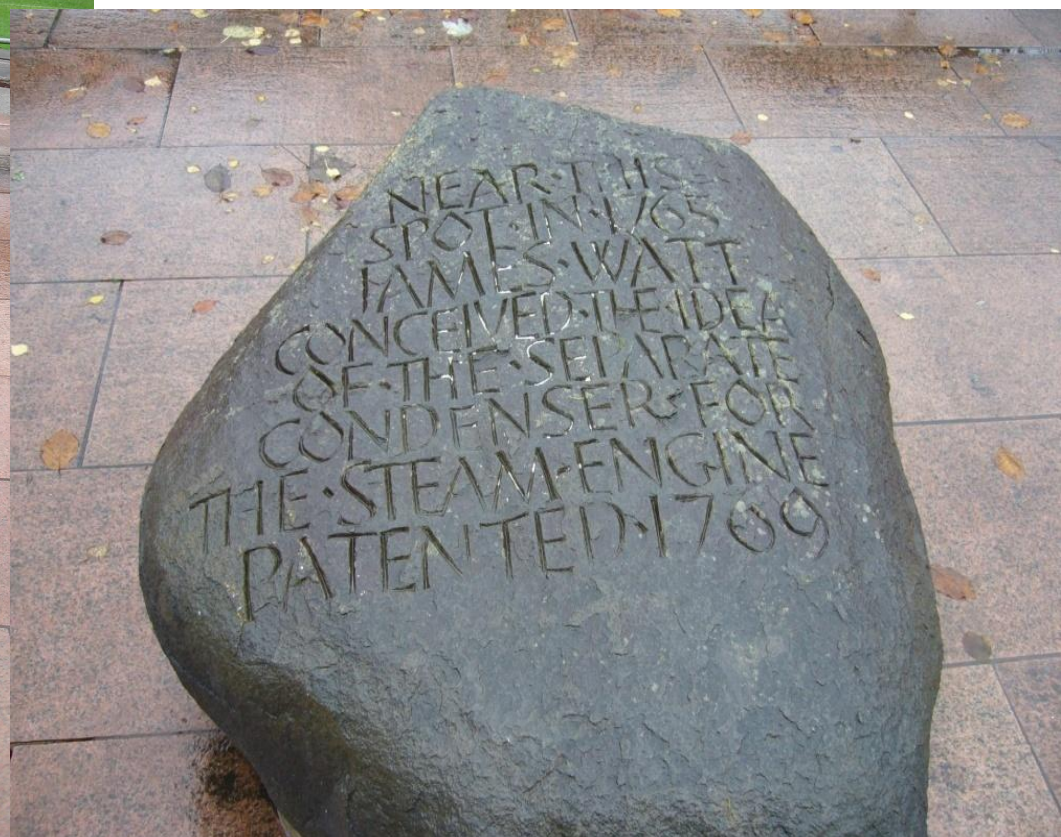 NEAR·THIS
SPOT·IN·1765
JAMES·WATT
CONCEIVED·THE·IDEA
OF·THE·SEPARATE
CONDENSER·FOR
THE·STEAM·ENGINE
PATENTED·1769